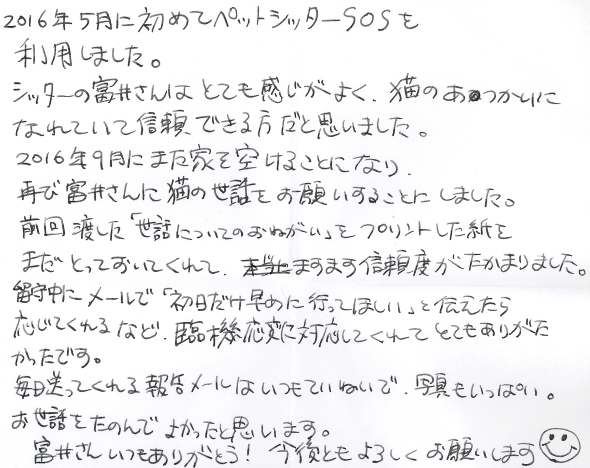 2016年5月に初めてペットシッターSOSを
利用しました。
シッターの富井さんはとても感じがよく、猫のあつかいに
なれていて信頼できる方だと思いました。
2016年9月にまた家を空けることになり、
再び富井さんに猫の世話をお願いすることにしました。
前回渡した「世話についてのおねがい」をプリントした紙を
まだとっておいてくれて、ますます信頼度がたかまりました。
留守中にメールで「初日だけ早めに行ってほしい」と伝えたら
応じてくれるなど、臨機応変に対応してくれてとてもありがた
かったです。
毎日送ってくれる報告メールはいつもていねいで、写真もいっぱい。
お世話をたのんでよかったと思います。
富井さんいつもありがとう！ 今後ともよろしくお願いします